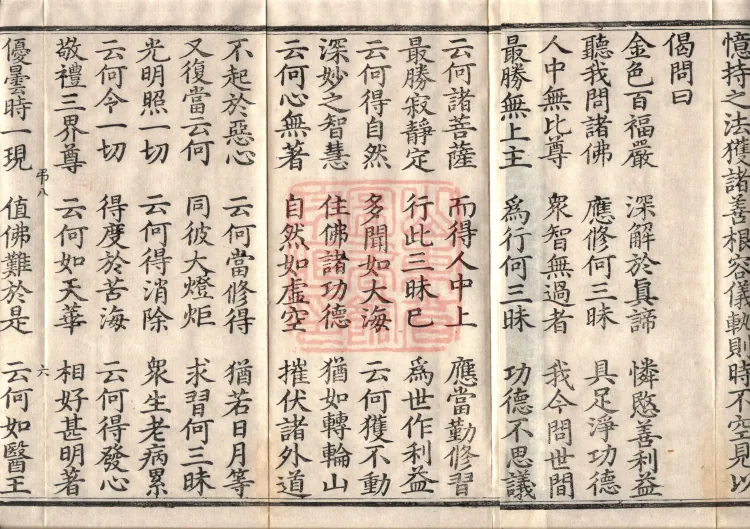 憶持之法獲諸善根容儀軌則時不空見以
偈問曰
金色百福嚴 深解於真諦 憐愍善利益
聽我問諸佛 應修何三昧 具足淨功德
人中無比尊 衆智無過者 我今問世間
最勝無上主 爲行何三昧 功德不思議
云何諸菩薩 而得人中上 應當勤修習
最勝寂靜定 行此三昧已 爲世作利益
云何得自然 多聞如大海 云何獲不動
深妙之智慧 住佛諸功德 猶如轉輪山
云何心無著 自然如虛空 摧伏諸外道
不起於惡心 云何當修得 猶若日月等
又復當云何 同彼大燈炬 求習何三昧
光明照一切 云何得消除 衆生老病累
云何令一切 得度於苦海 云何得發心
敬禮三界尊 云何如天華 相好甚明著
弔八 六
優曇時一現 值佛難於是 云何如醫王